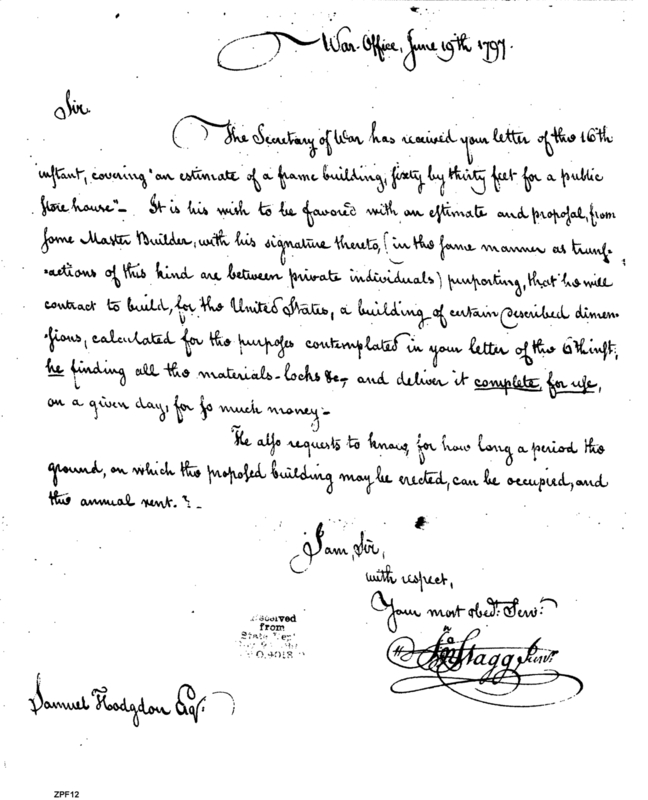 War-Office, June 19th 1797.
Sir.
The Secretary of War has received your letter of the 16th
instant, covering "an estimate of a frame building, sixty by thirty feet for a public
store house"- It is his wish to be favored with an estimate and proposal, from
some Master Builder, with his signature thereto, (in the same manner as trans-
-actions of this kind are between private individuals) purporting, that he will
contract to build, for the United States, a building of certain described dimen-
-sions, calculated for the purposes contemplated in your letter of the 6th inst,
he finding all the materials-locks &c, and deliver it complete, for use,
on a given day, for so much money-
He also requests to know, for how long a period the
ground, on which the proposed building may be erected, can be occupied, and
the annual rent.?-
I am, Sir,
with respect,
Your most obedt. Servt.
Jno Stagg Junr.
Received
from
State Dept
Samuel Hodgdon Esqr.
ZPF12